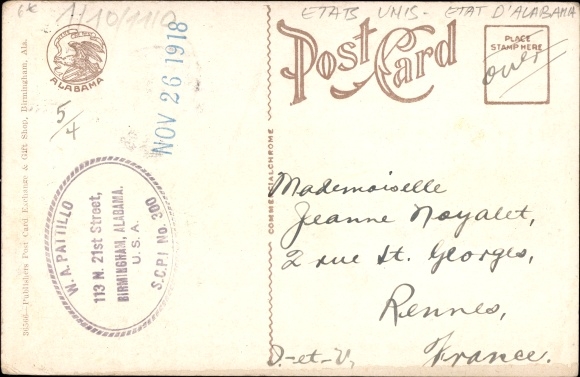 6€
1/10/1110
ETAS UNIS - ETAT D'ALABAMA
Post Card
PLACE
STAMP HERE
over
ALABAMA
5/4
NOV 26 1918
W. A. PATTILLO
113 N. 21st Street,
BIRMINGHAM, ALABAMA.
U. S. A.
S.C.P.I No. 300
36566—Publishers Post Card Exchange & Gift Shop, Birmingham, Ala.
COMMERCIALCHROME
Mademoiselle
Jeanne Noyalet,
2 rue St. Georges,
Rennes,
I.-et-V.
France.